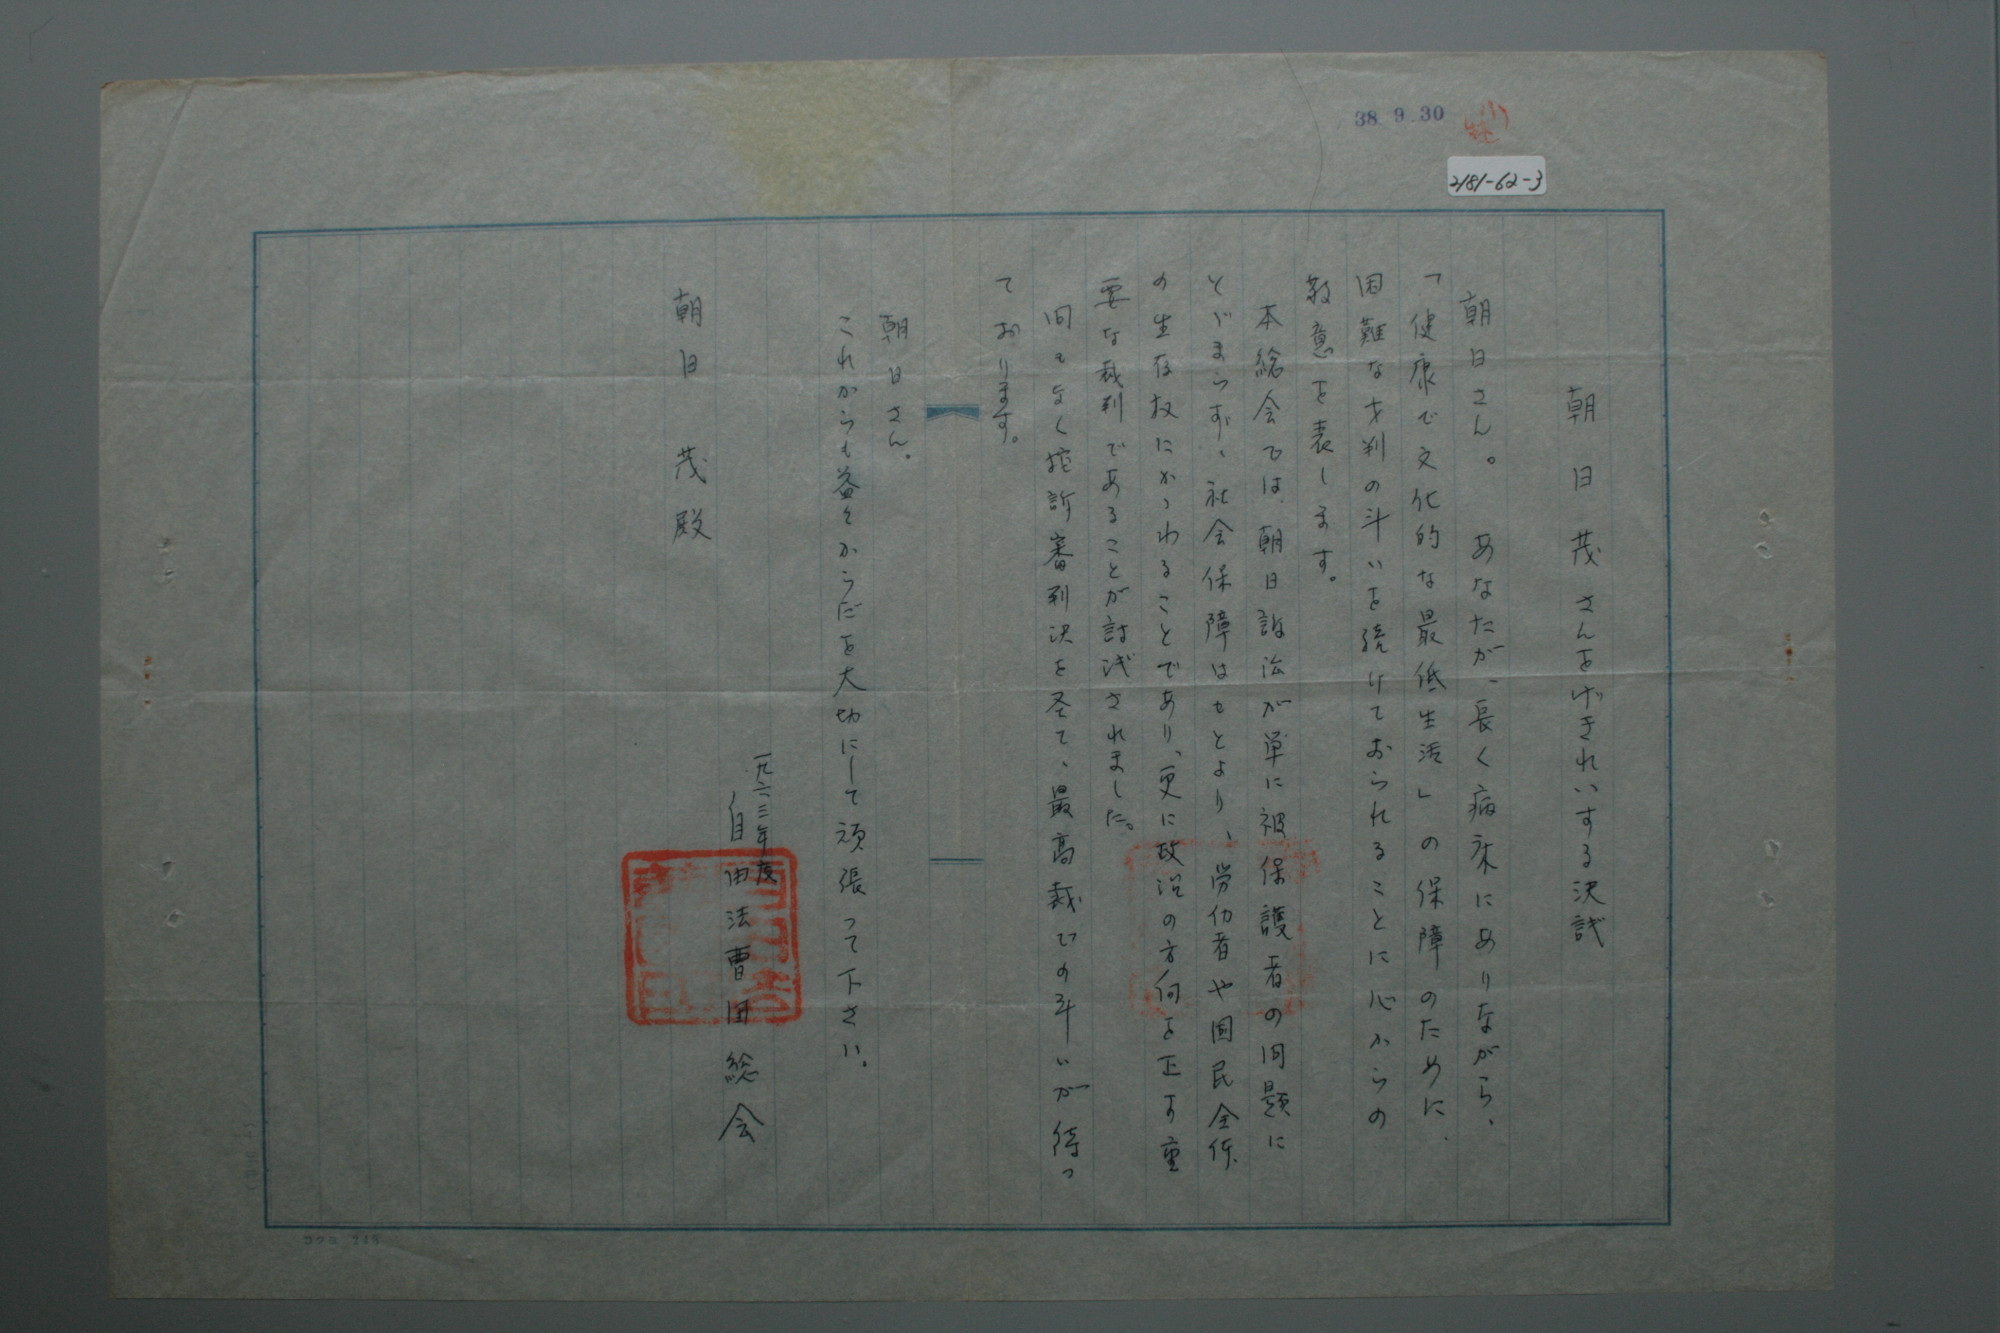 38.9.30
2181-62-3
朝日茂さんをげきれいする決議
朝日さん。 あなたが、長く病床にありながら、
「健康で文化的な最低生活」の保障のために、
困難な才判の斗いを続けておられることに心からの
敬意を表します。
本総会では、朝日訴訟が単に被保護者の問題に
とゞまらず、社会保障はもとより、労仂者や国民全体
の生存权にかゝわることであり、更に政治の方向を正す重
要な裁判であることが討議されました。
間もなく控訴審判決を圣て、最高裁での斗いが待っ
ております。
朝日さん。
これからも益々からだを大切にして頑張って下さい。
一九六三年度
自由法曹団総会
朝日 茂殿